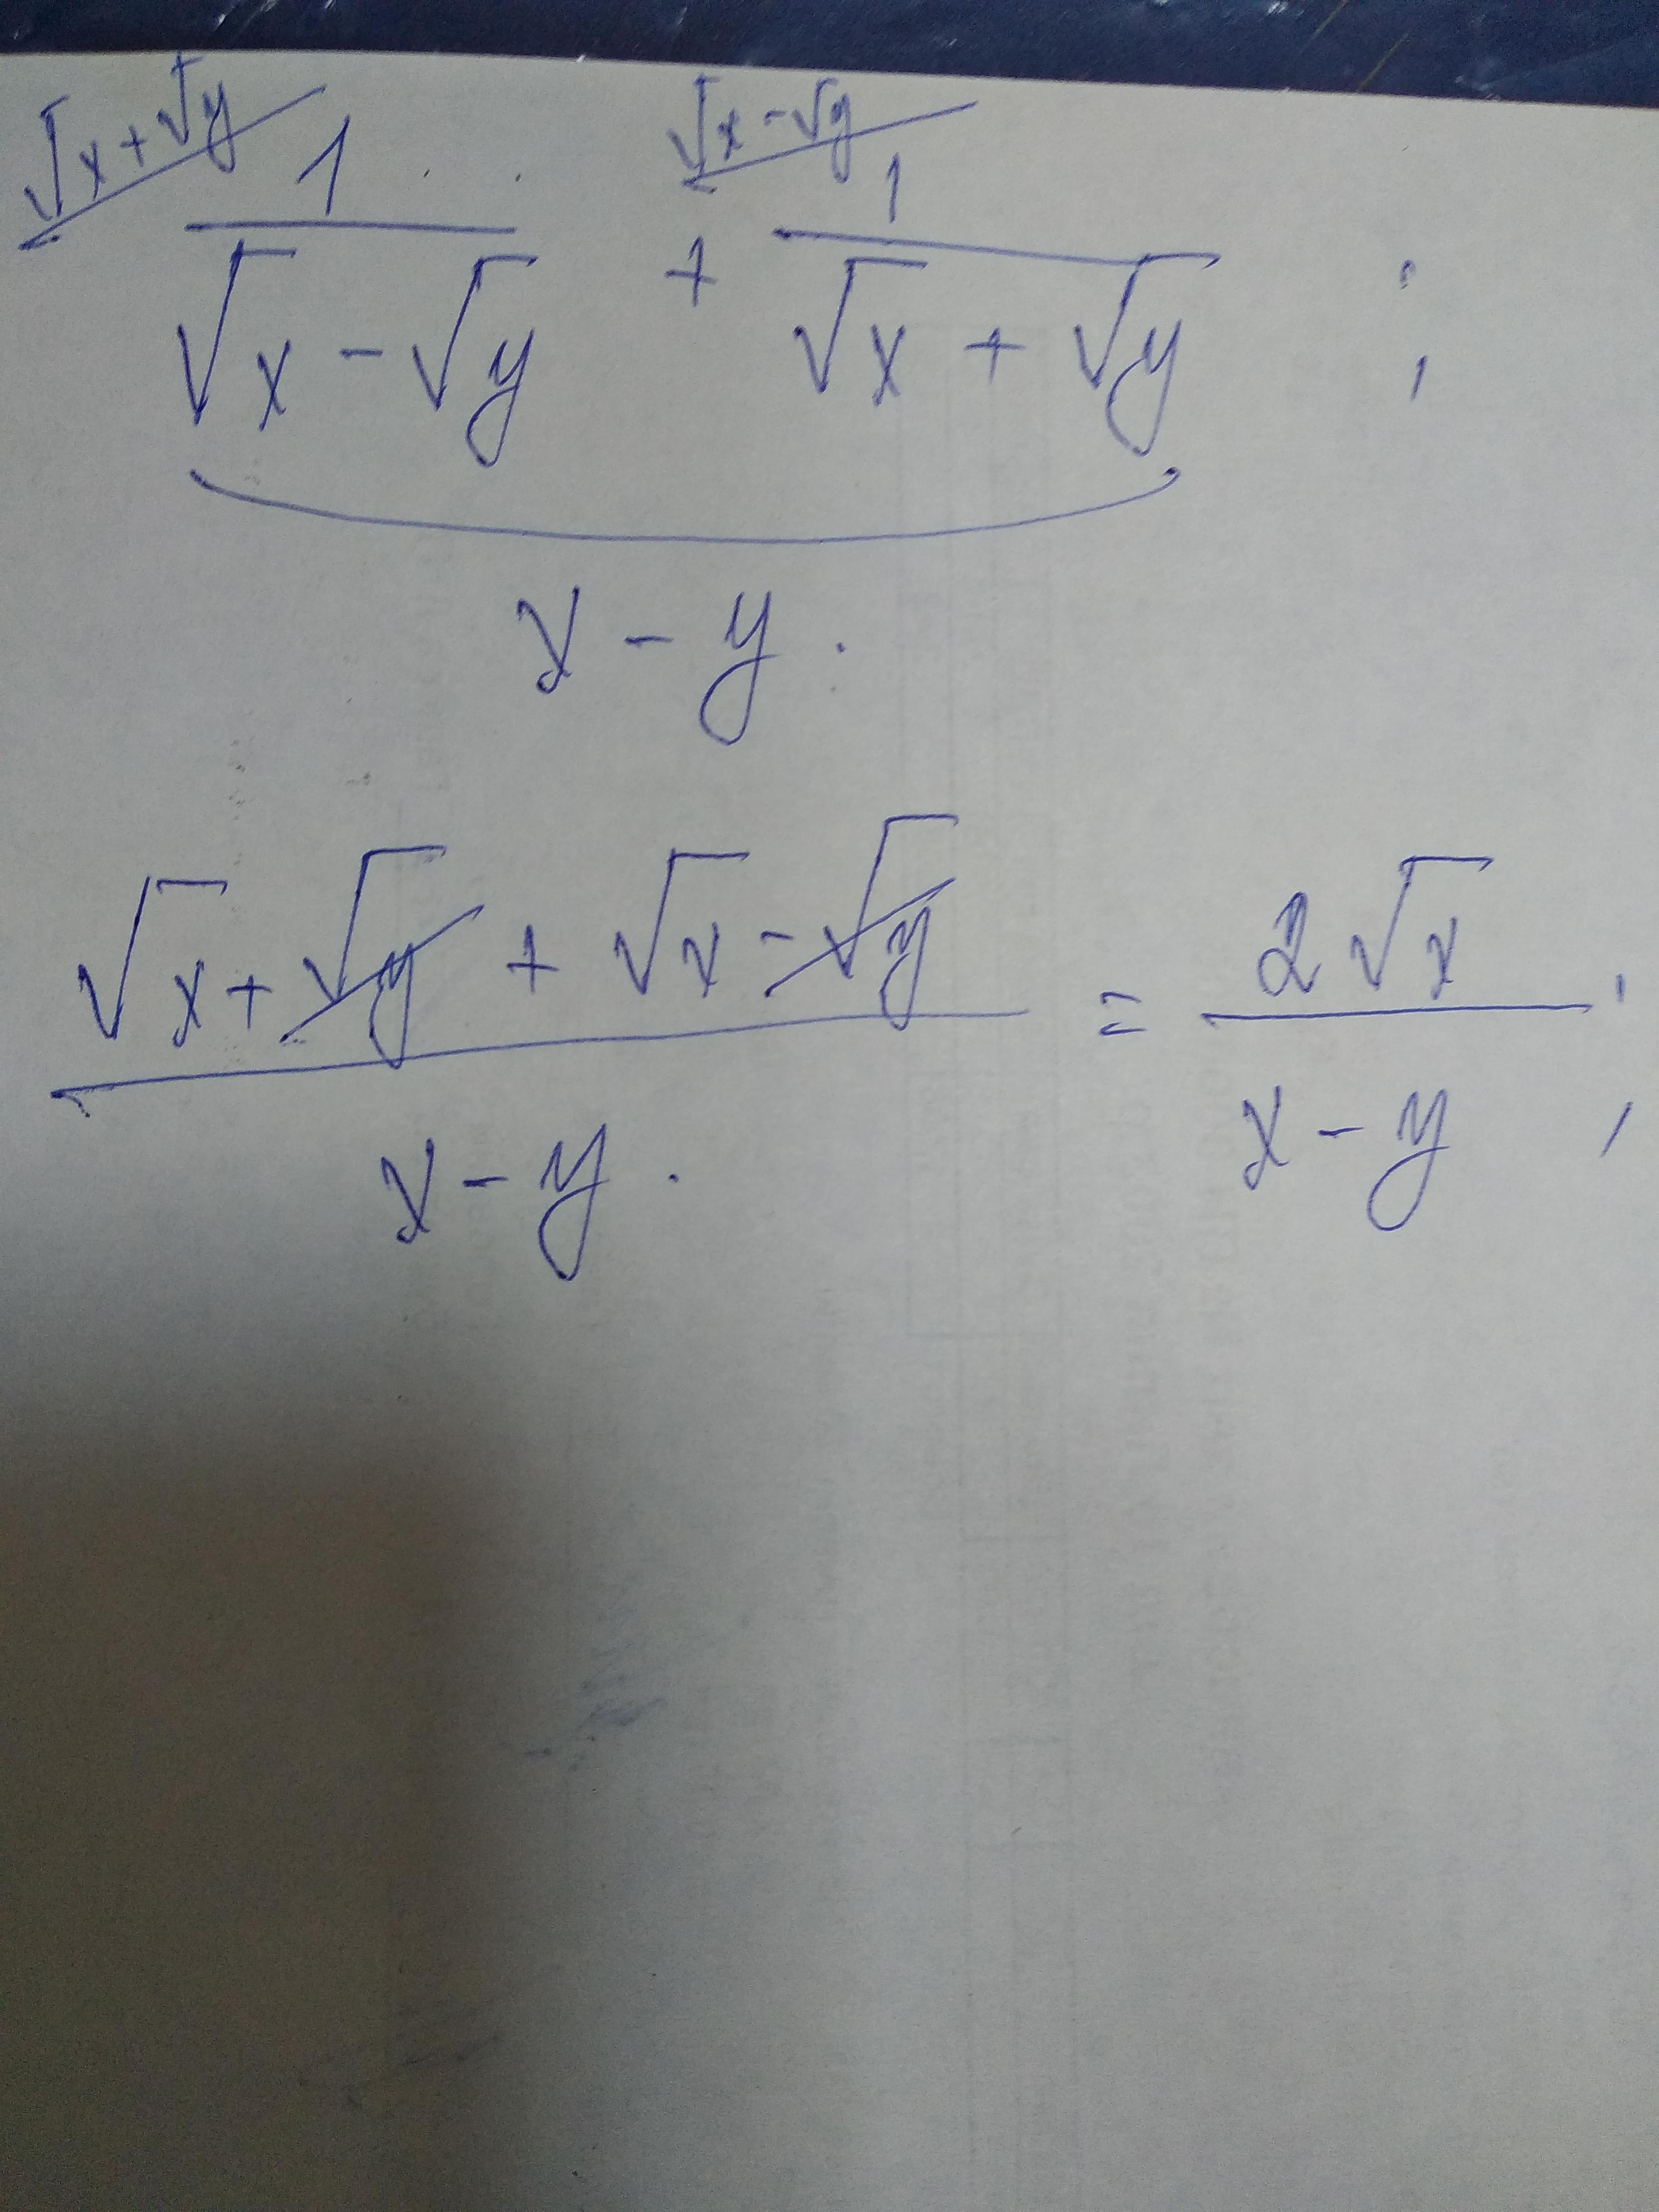 √x+√y 1 √x-√y 1
+ ;
√x - √y √x + √y
x - y .
√x + √y + √x - √y = 2√x ;
x - y . x - y